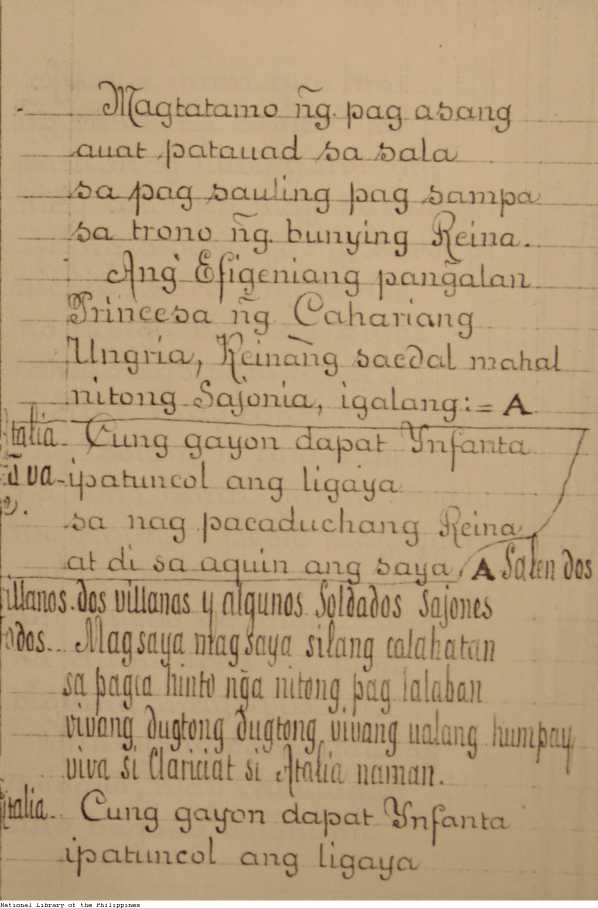 Magtatamo ñg. pag asang
auat patauad sa sala
sa pag sauling pag sampa
sa trono ñg. bunying Reina.
Ang Efigeniang pang̃alan
Princesa ñg Cahariang
Ungria, Reinang saedal mahal
nitong Sajonia, igalang:= A
talia. Cung gayon dapat Ynfanta
ipatuncol ang ligaya
sa nag pacaduchang Reina
at di sa aquin ang saya, A Salen dos
illanos. dos villanas y algunos Soldados Sajones
odos.. Magsaya magsaya silang calahatan
sa pagca hinto nga nitong pag lalaban
vivang dugtong dugtong, vivang ualang humpay
viva si Clariciat si Atalia naman.
talia.. Cung gayon dapat Ynfanta
ipatuncol ang ligaya
National Library of the Philippines